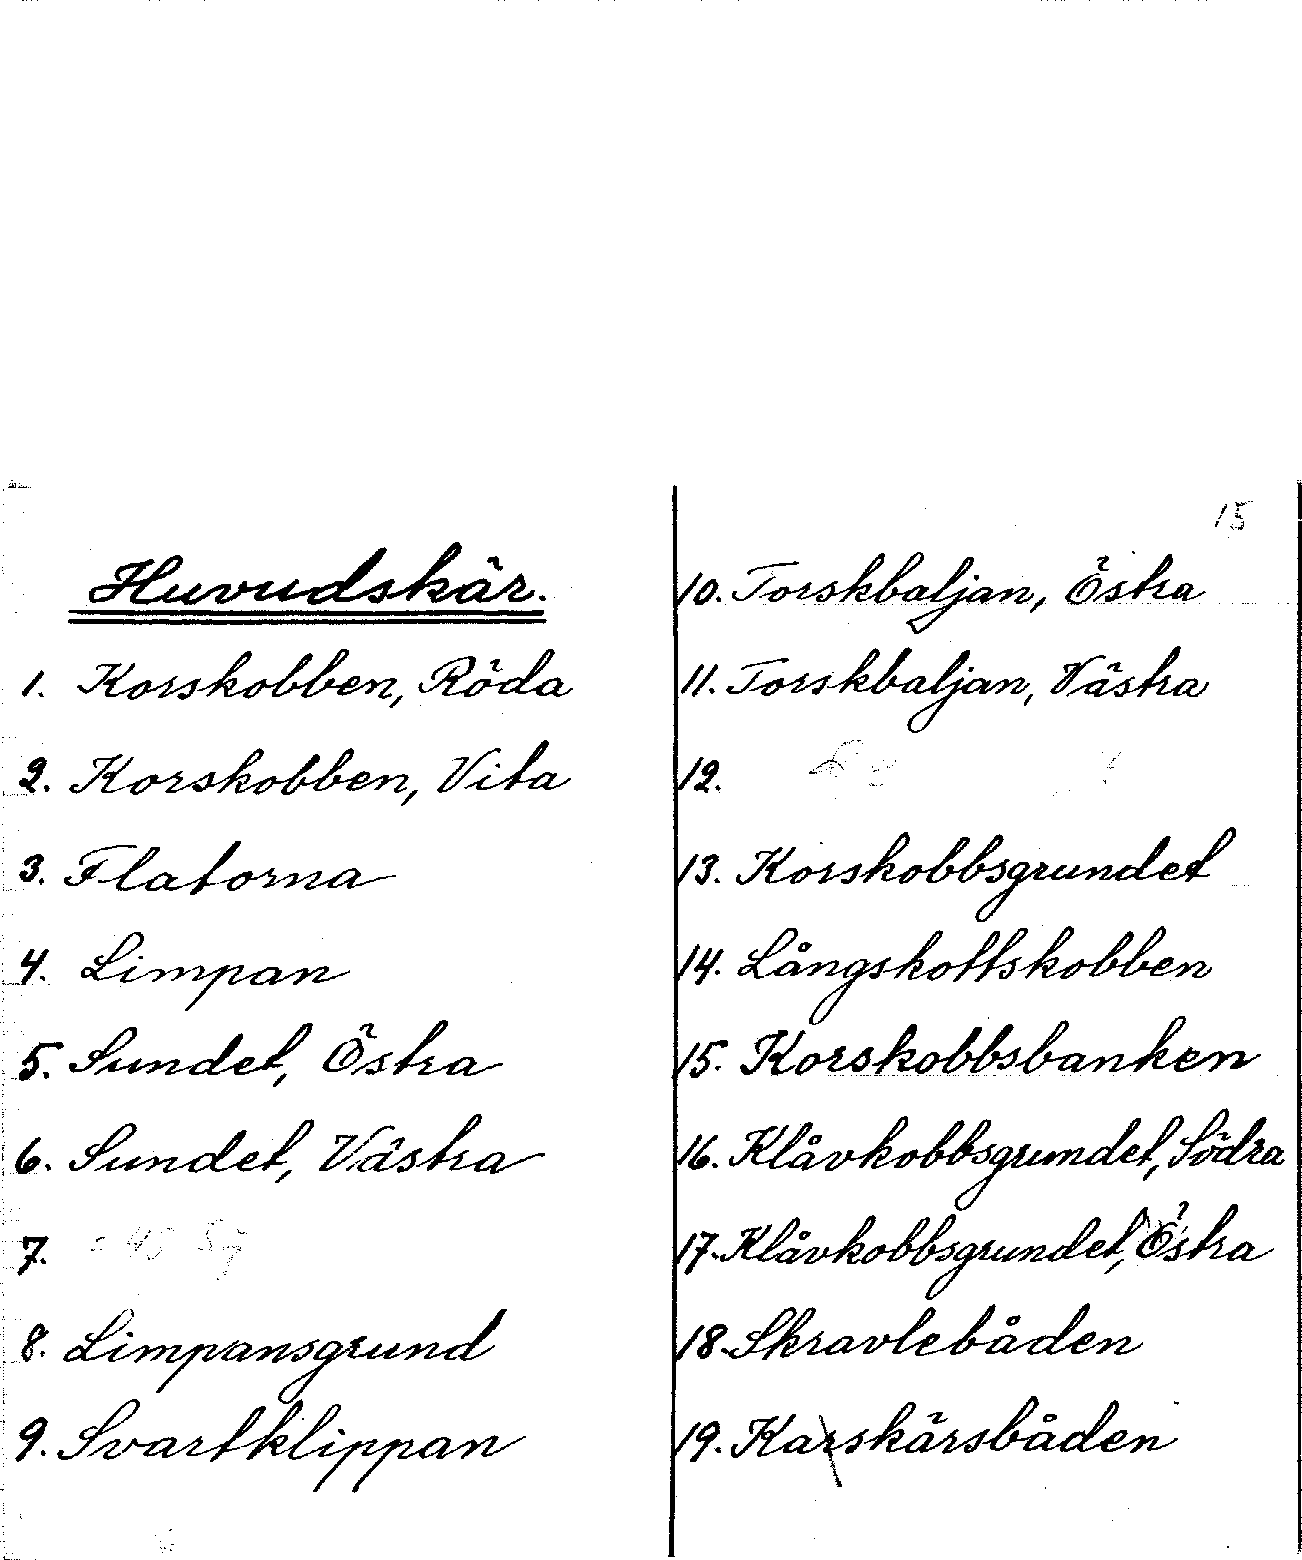 Huvudskär.
1. Korskobben, Röda
2. Korskobben, Vita
3. Flatorna
4. Limpan
5. Sundet, Östra
6. Sundet, Västra
7.
8. Limpansgrund
9. Svartklippan
15
10. Torskbaljan, Östra
11. Torskbaljan, Västra
12.
13. Korskobbsgrundet
14. Långskottskobben
15. Korskobbsbanken
16. Klåvkobbsgrundet, Södra
17. Klåvkobbsgrundet, Östra
18. Skravlebåden
19. Karskärsbåden